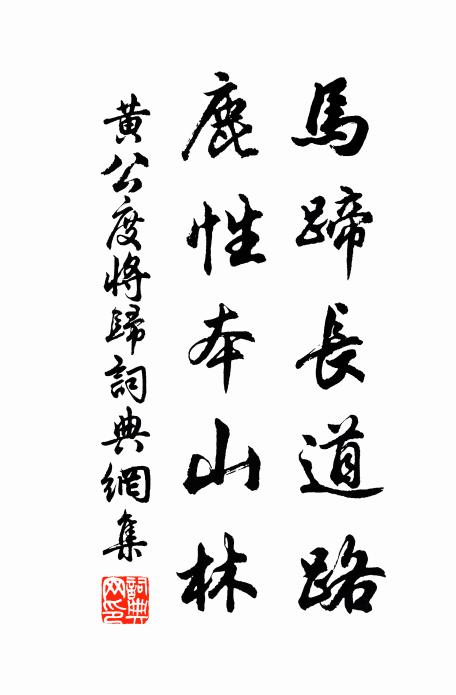 馬蹄長道路
鹿性本山林
黃公度將歸詞典網集
詞典網印